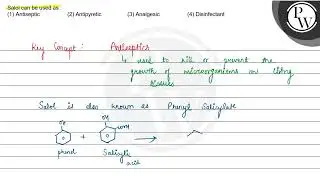 Salol can be used as
(1) Antiseptic (2) Antipyretic (3) Analgesic (4) Disinfectant
PW
Key Concept : Antiseptics
↳ used to kill or prevent the
growth of microorganisms on living
tissues
Salol is also known as Phenyl Salicylate
OH OH
COOH
+ →
phenol Salicylic
acid